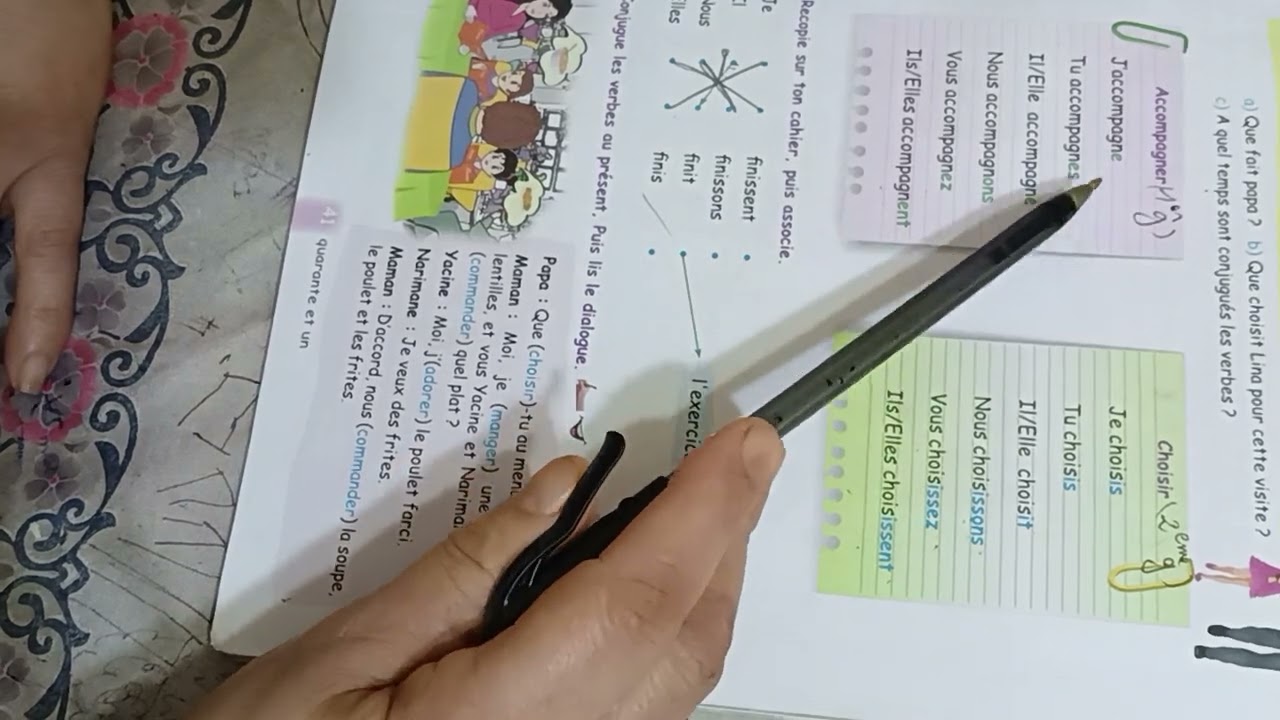 a) Que fait papa ? b) Que choisit Lina pour cette visite ?
c) A quel temps sont conjugués les verbes ?
Accompagner
J'accompagne
Tu accompagnes
Il/Elle accompagne
Nous accompagnons
Vous accompagnez
Ils/Elles accompagnent
Choisir (2eme g)
Je choisis
Tu choisis
Il/Elle choisit
Nous choisissons
Vous choisissez
Ils/Elles choisissent
Recopie sur ton cahier, puis associe.
Je
finissent
Nous
finissons
finit
l'exercic
finis
les verbes au présent. Puis lis le dialogue.
Papa : Que (choisir)-tu au
Maman : Moi, je (manger) une
lentilles, et vous Yacine et
(commander) quel plat ?
Yacine : Moi, j'(adorer) le poulet farci.
Narimane : Je veux des frites.
Maman : D'accord, nous (commander) la soupe,
le poulet et les frites.
41 quarante et un